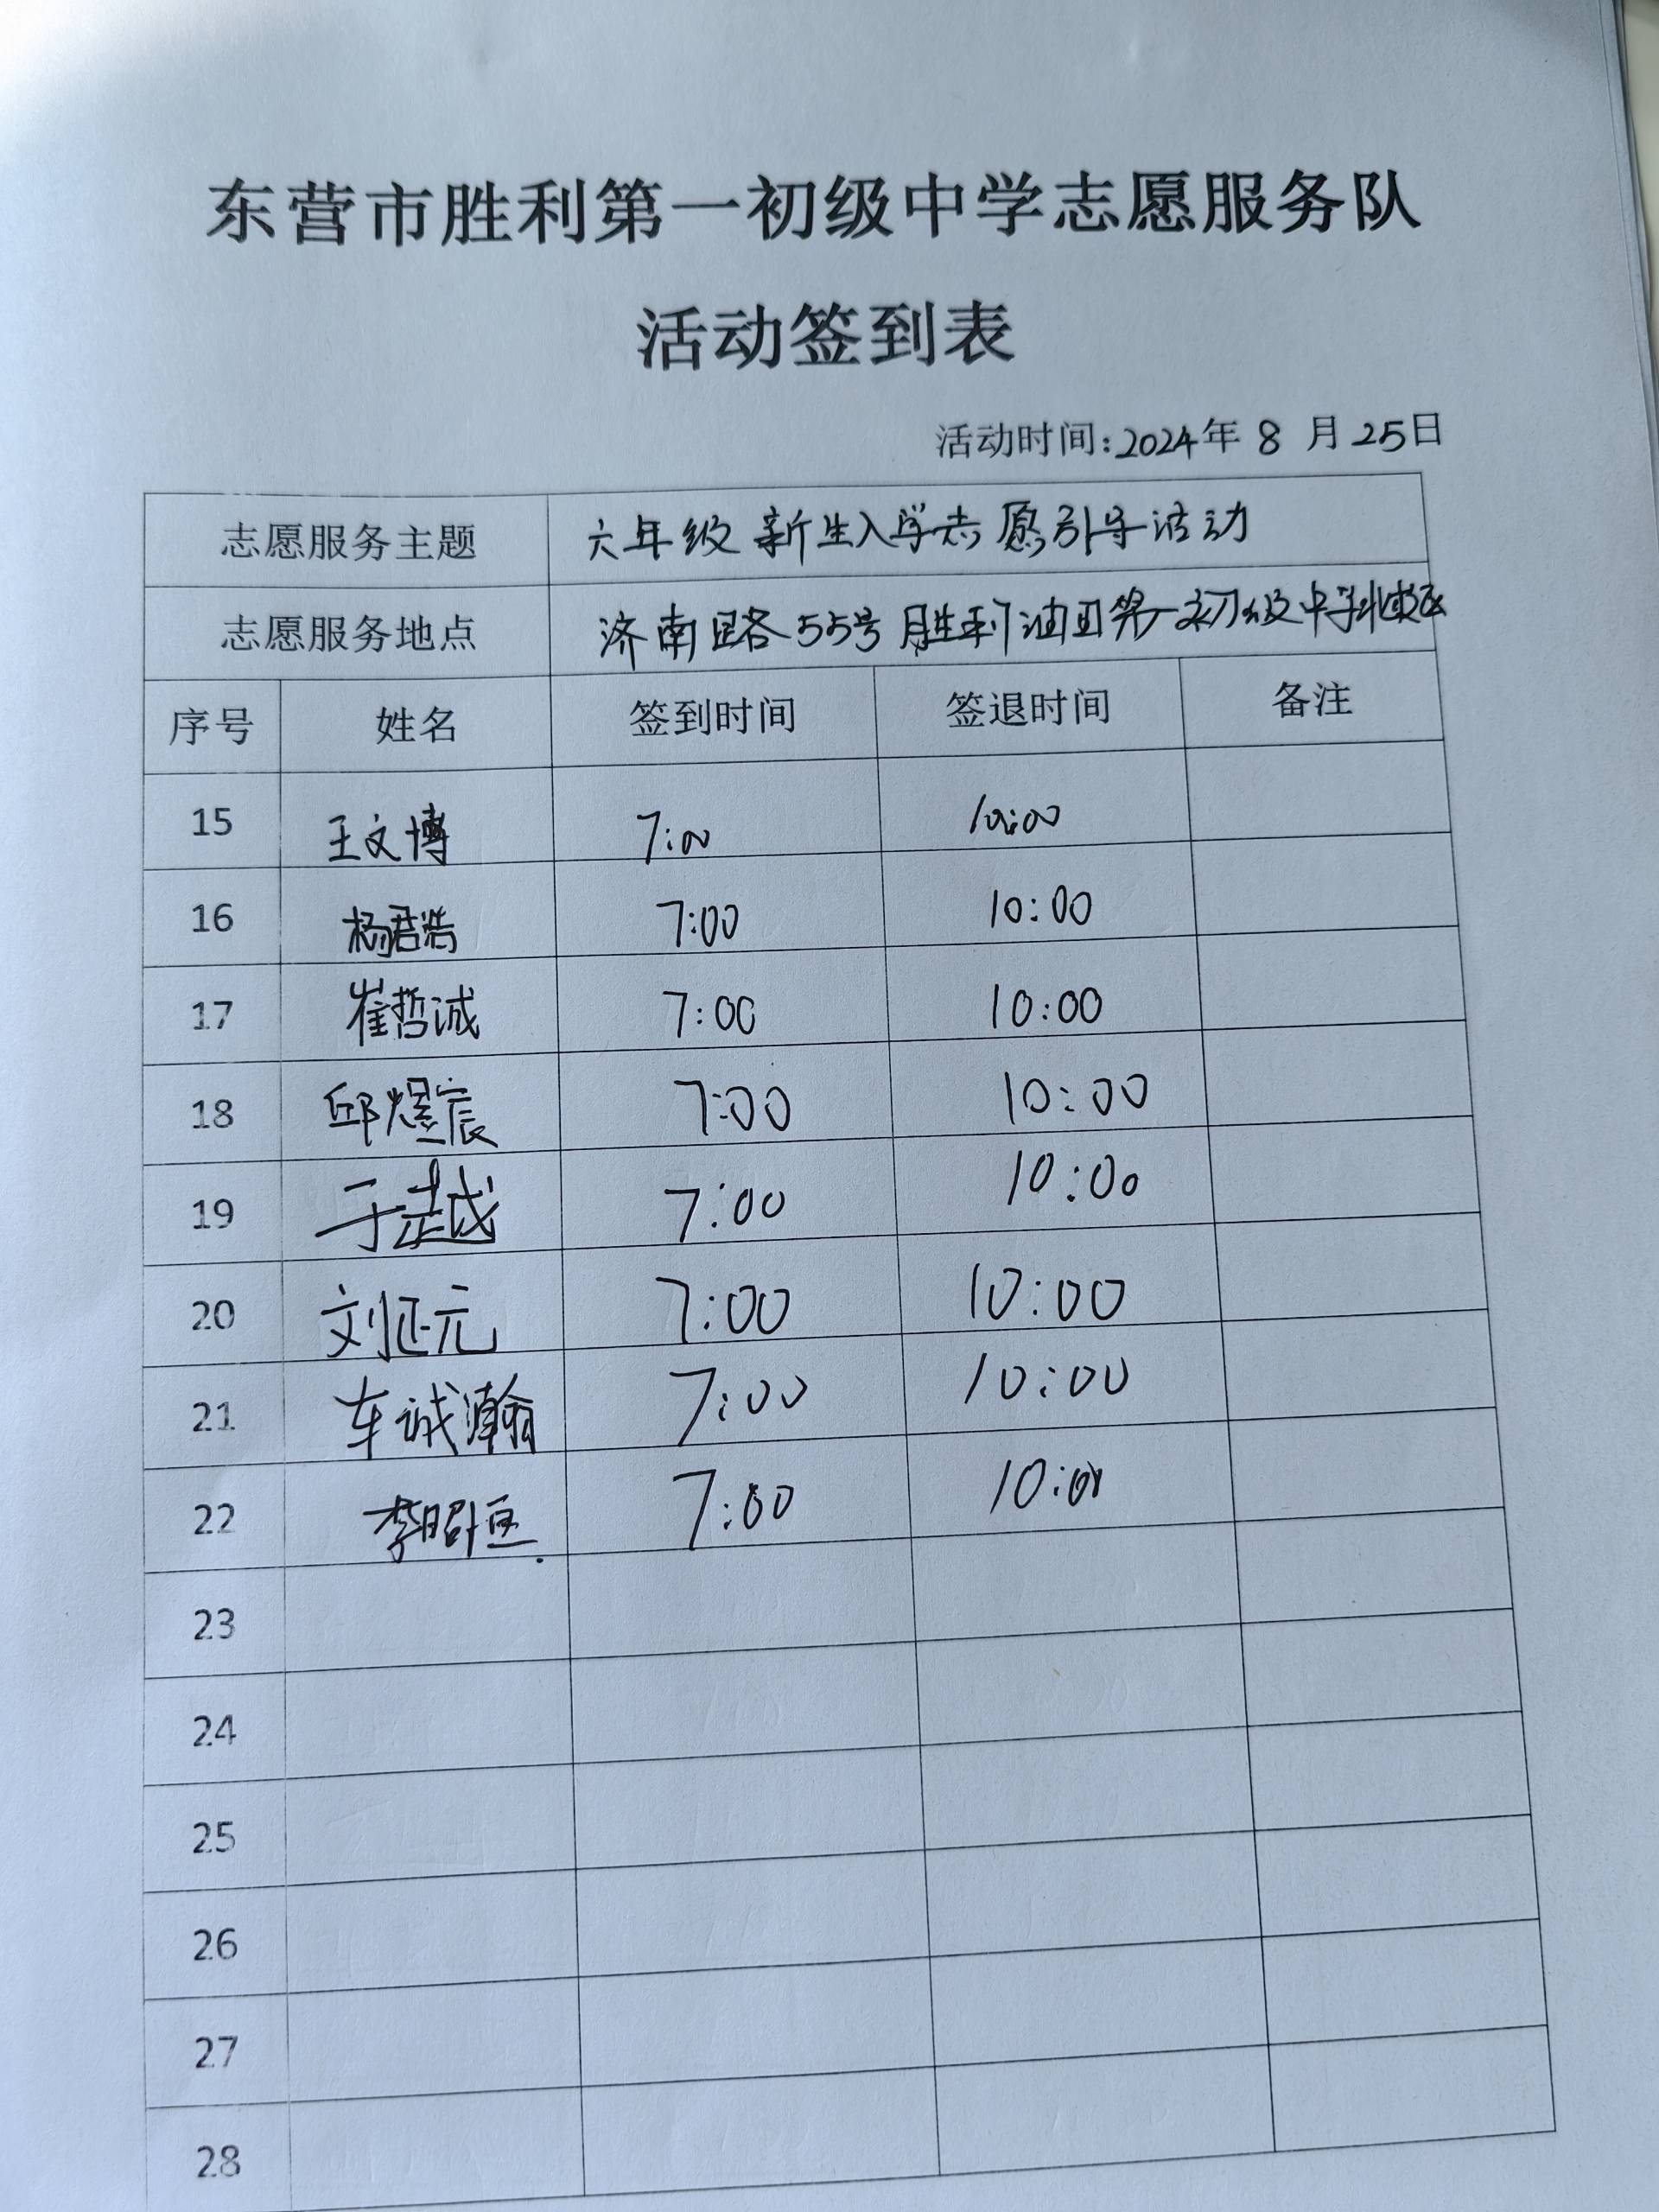 东营市胜利第一初级中学志愿服务队
活动签到表
活动时间:2024年 8 月 25日
志愿服务主题 六年级新生入学志愿引导活动
志愿服务地点 济南路55号胜利油田第一初级中学北校区
序号 姓名 签到时间 签退时间 备注
15 王文博 7:00 10:00
16 杨君浩 7:00 10:00
17 崔哲诚 7:00 10:00
18 邱煜宸 7:00 10:00
19 于越 7:00 10:00
20 刘正元 7:00 10:00
21 车诚瀚 7:00 10:00
22 李昭 7:00 10:00
23
24
25
26
27
28